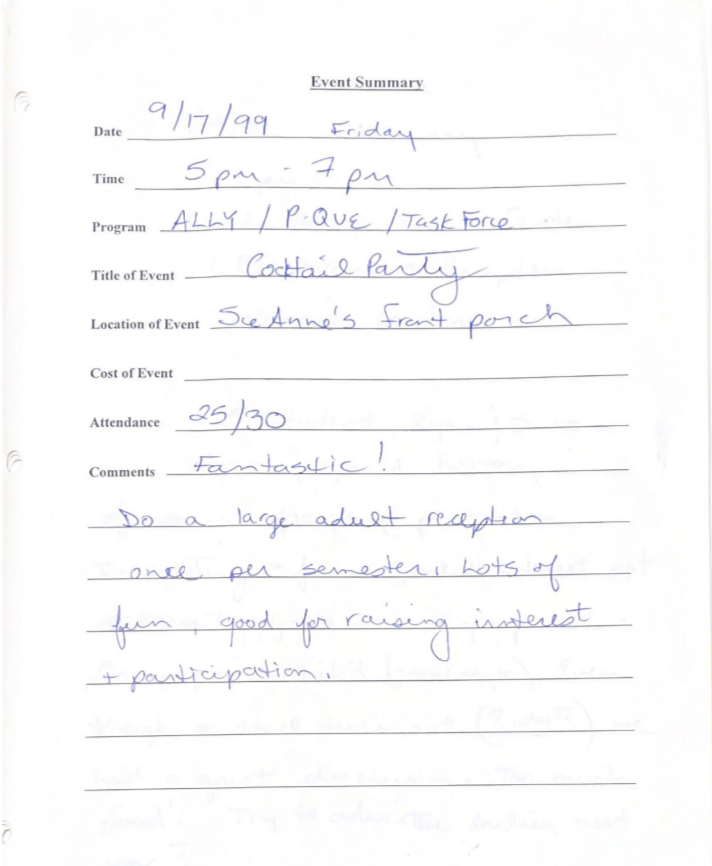 Event Summary
Date 9/17/99 Friday
Time 5 pm - 7 pm
Program ALLY / P-QUE / Task Force
Title of Event Cocktail Party
Location of Event Sue Anne's front porch
Cost of Event
Attendance 25/30
Comments Fantastic!
Do a large adult reception
once per semester. Lots of
fun, good for raising interest
+ participation.